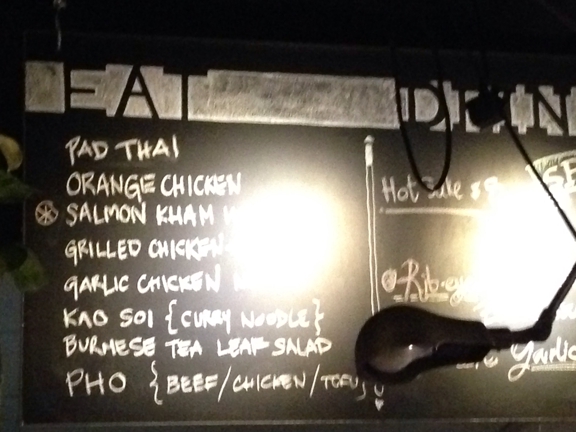 EAT
PAD THAI
ORANGE CHICKEN
SALMON KHAM
GRILLED CHICKEN
GARLIC CHICKEN
KAO SOI {CURRY NOODLE}
BURMESE TEA LEAF SALAD
PHO {BEEF/CHICKEN/TOFU}
DRIN
Hot Sake $8
Rib-eye
Garlic